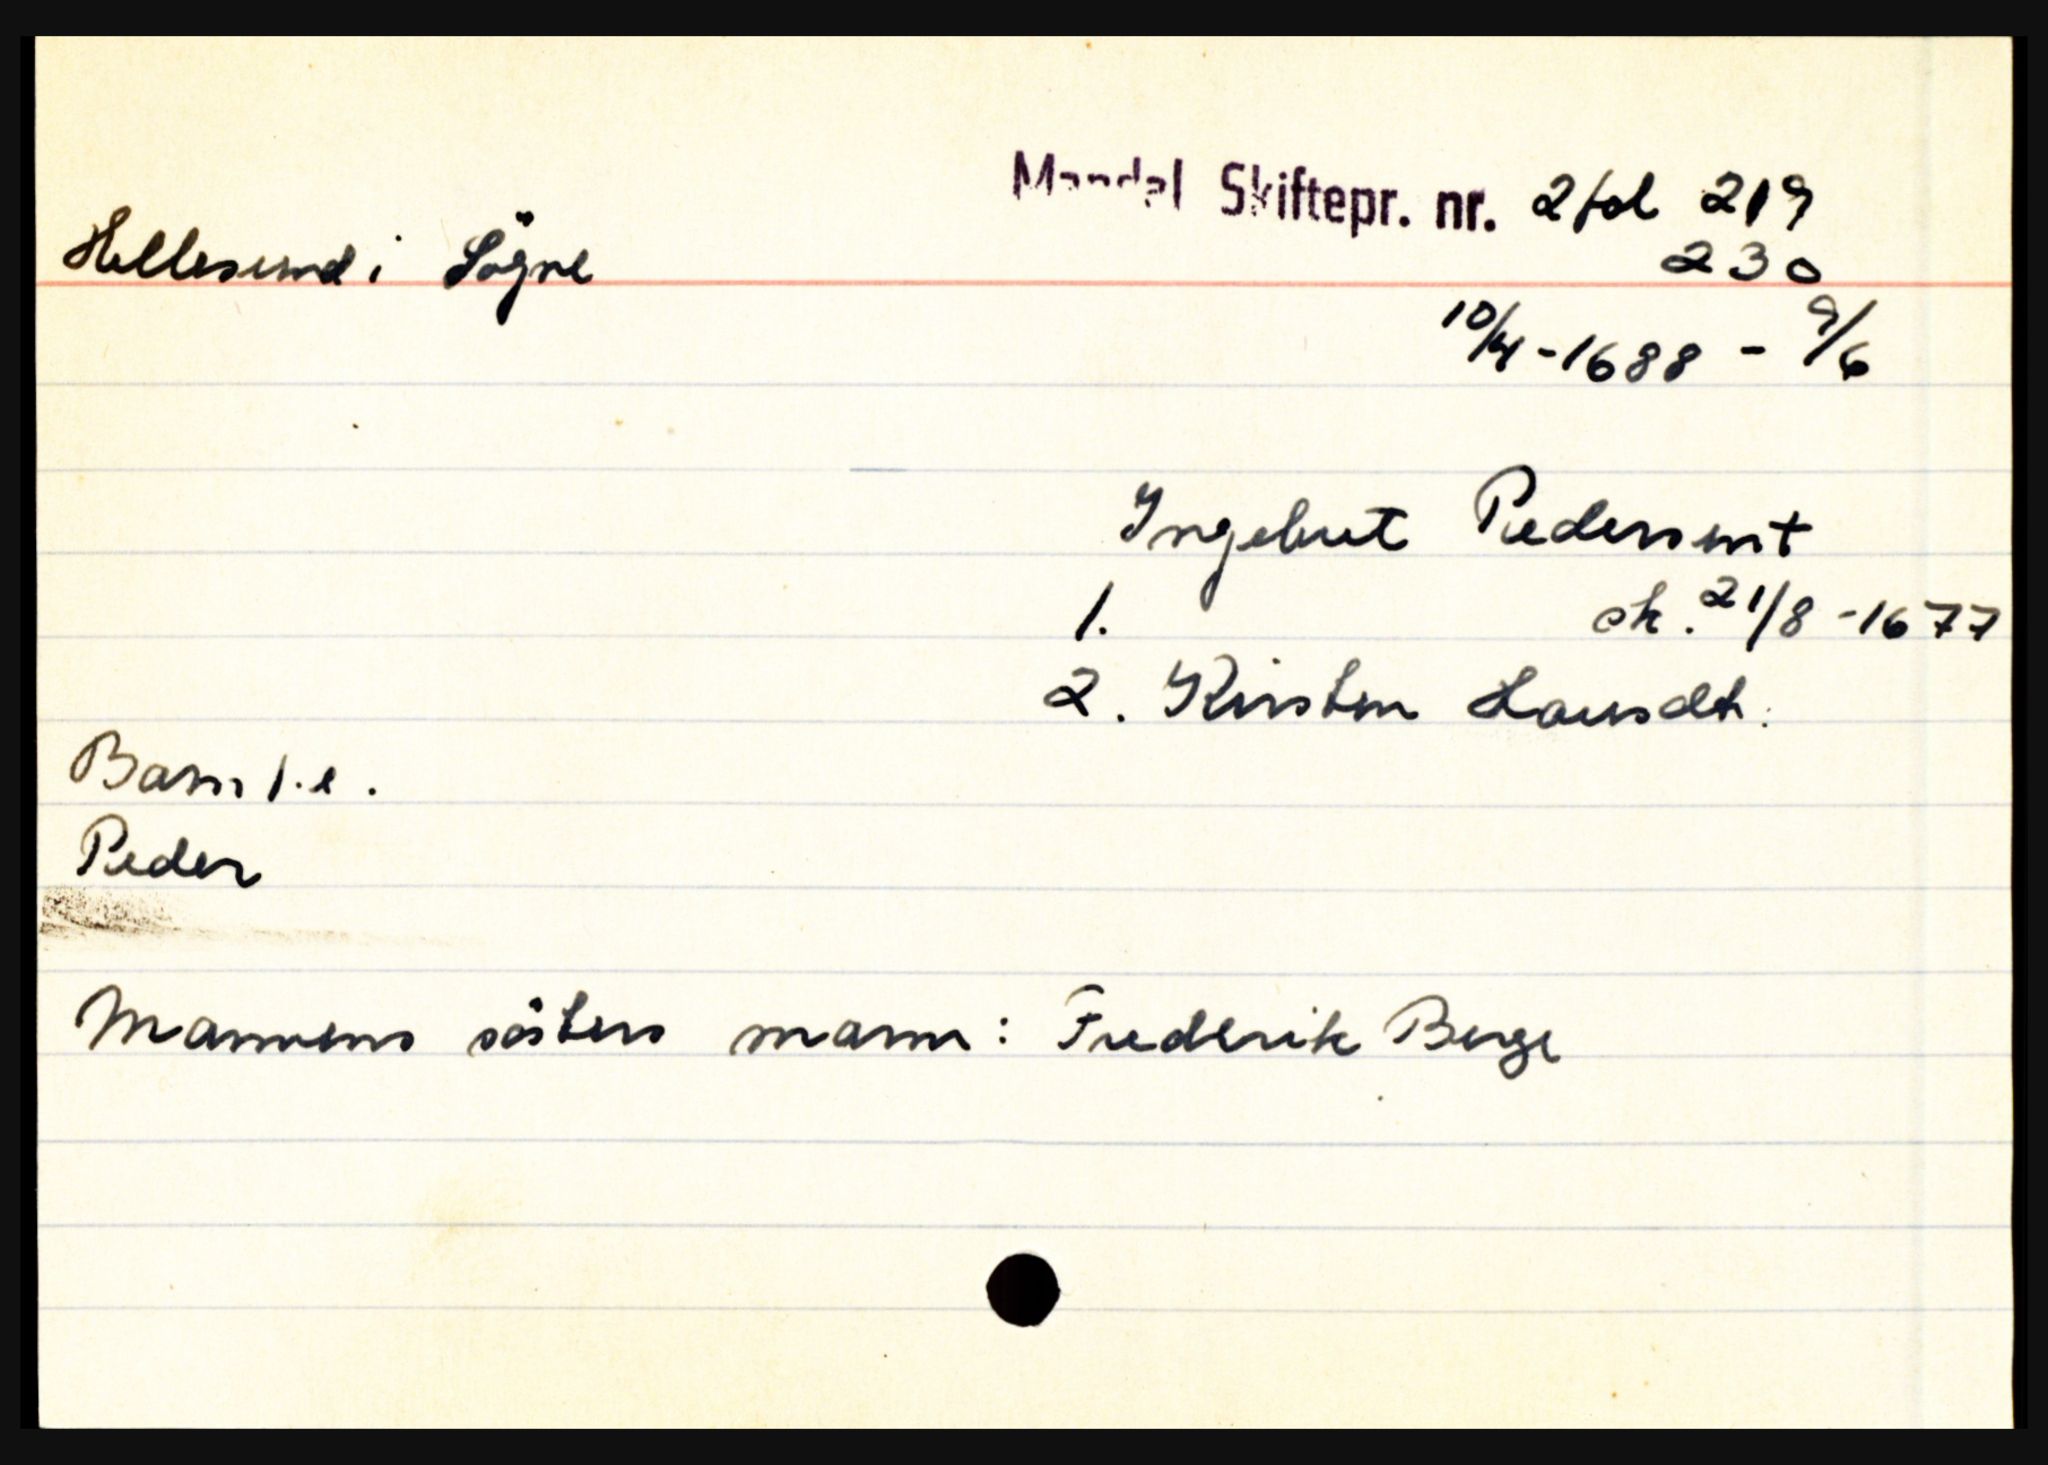 Mandal Skiftepr. nr. 2 fol 219
Hellesund i Sögne 230
10/4-1688 - 9/6
Ingebret Pedersen †
1. sk. 21/8-1677
2. Kirsten Hansdt.
Barn 1.e.
Peder
Mannens sösters mann: Frederik Berge